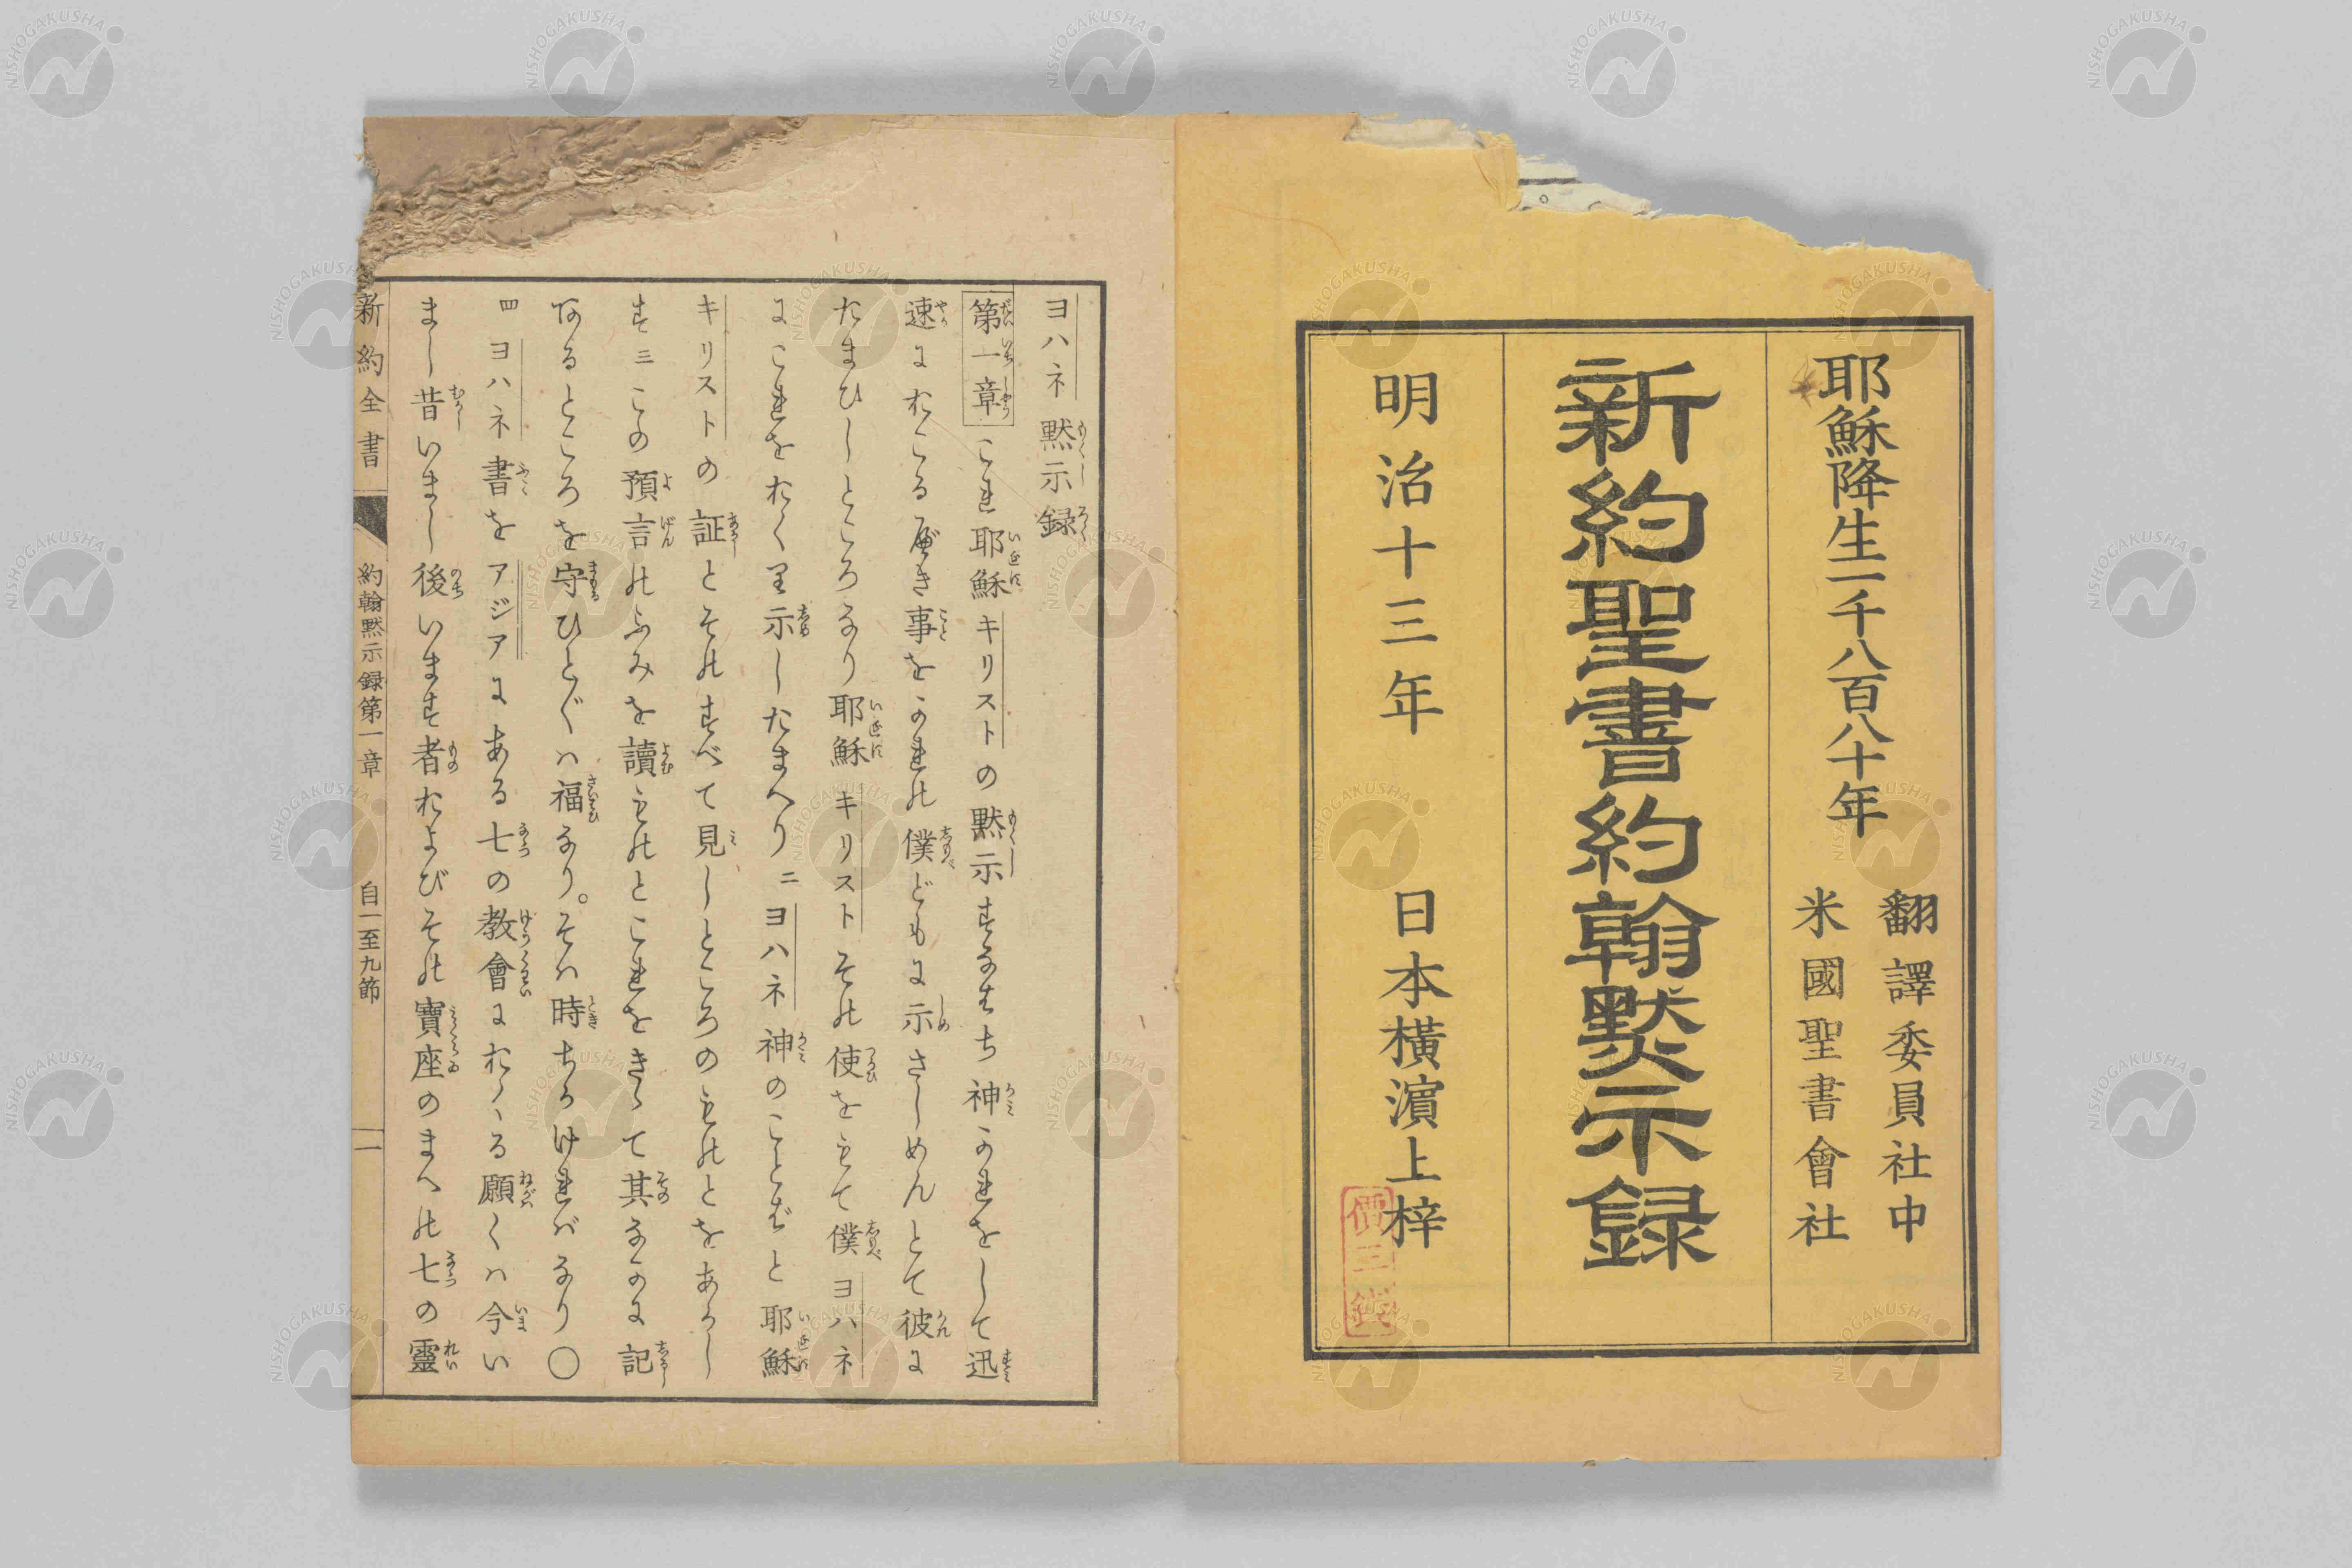 耶穌降生一千八百八十年
翻譯委員社中
米國聖書會社
新約聖書約翰默示録
明治十三年 日本橫濱上梓
價三錢
ヨハネ黙示録
第一章 これ耶穌キリストの黙示すなはち神かれをして迅
速におこる可き事をかれの僕どもに示さしめんとて彼に
たまひしところなり耶穌キリストその使をもて僕ヨハネ
にこれをおくり示したまへり 二 ヨハネ神のことばと耶穌
キリストの証とそのすべて見しところのものとをあかし
す 三 この預言のふみを讀ものとこれをきゝて其なかに記
あるところを守ひと〴〵は福なり。そは時ちかければなり〇
四 ヨハネ書をアジアにある七の教會におくる願くは今い
まし昔いまし後います者およびその寶座のまへの七の靈
新約全書 約翰黙示録第一章 自一至九節 一
NISHOGAKUSHA